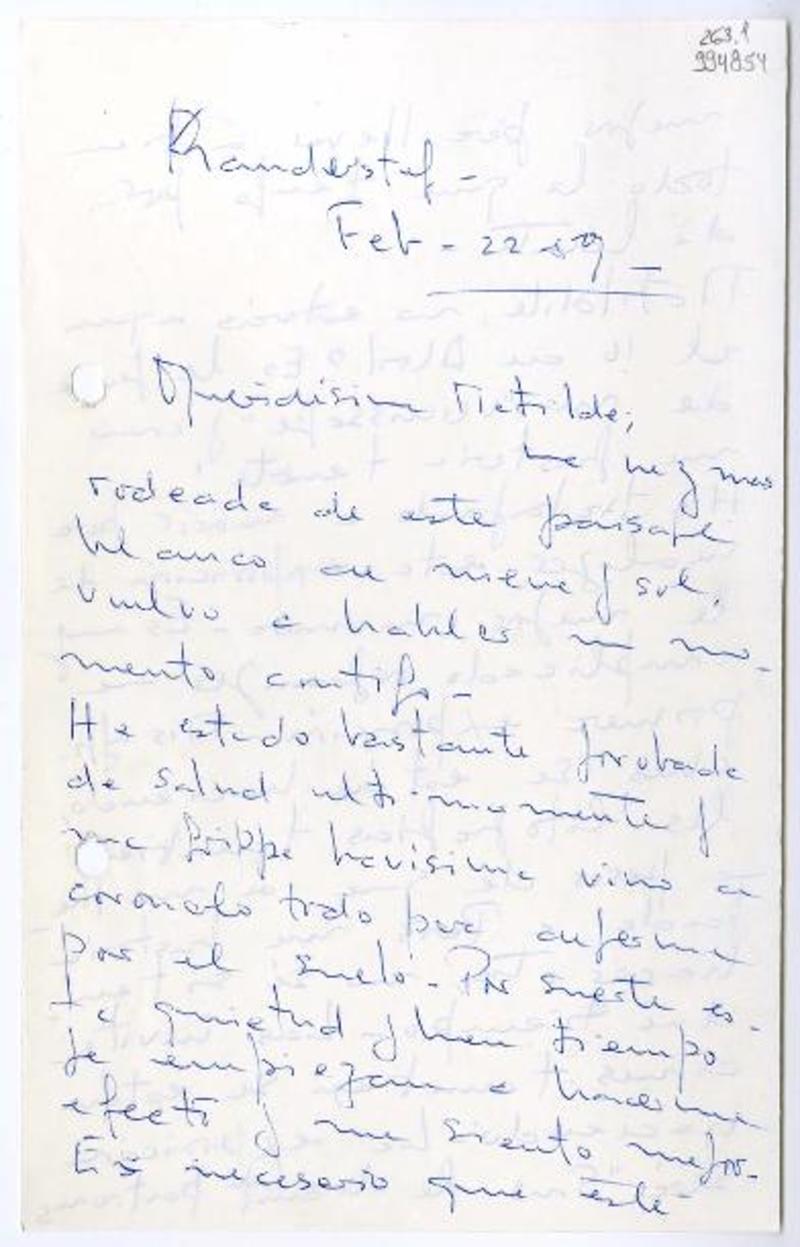 263.1
994854
Kandersteg -
Feb - 22 - 59 -
Queridísima Matilde;
Una vez más
rodeada de este paisaje
blanco en nieve y sol,
vuelvo a hablar un mo-
mento contigo -
He estado bastante probada
de salud ultimamente y
una Grippe havisima vino a
coronelo todo pura enferma
por el suelo. Por suerte es-
ta quietud y buen tiempo
ya empiezan a hacerme
efecto y me siento mejor.
Es necesario que esté